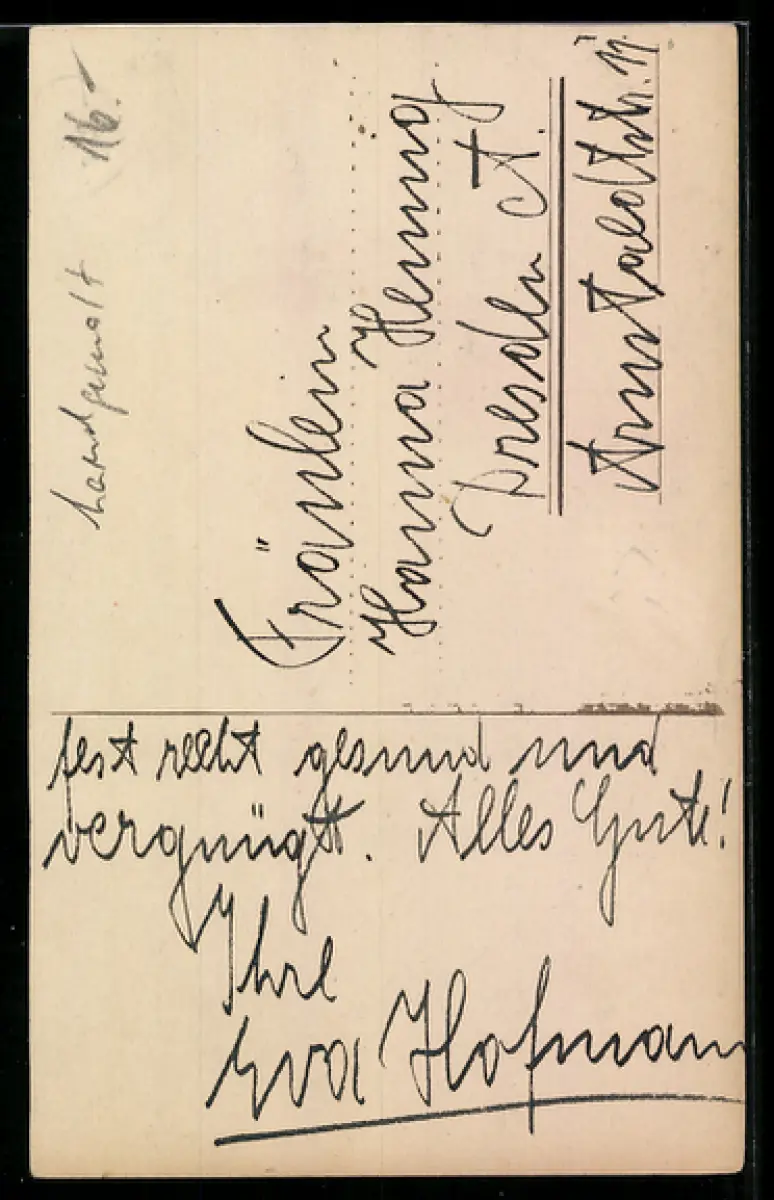 handgemalt 16.-
Fräulein
Hanna Hennig
Dresden A.
Arnstaedtstr. 17
fest recht gesund und
vergnügt. Alles Gute!
Ihre
Eva Hofmann